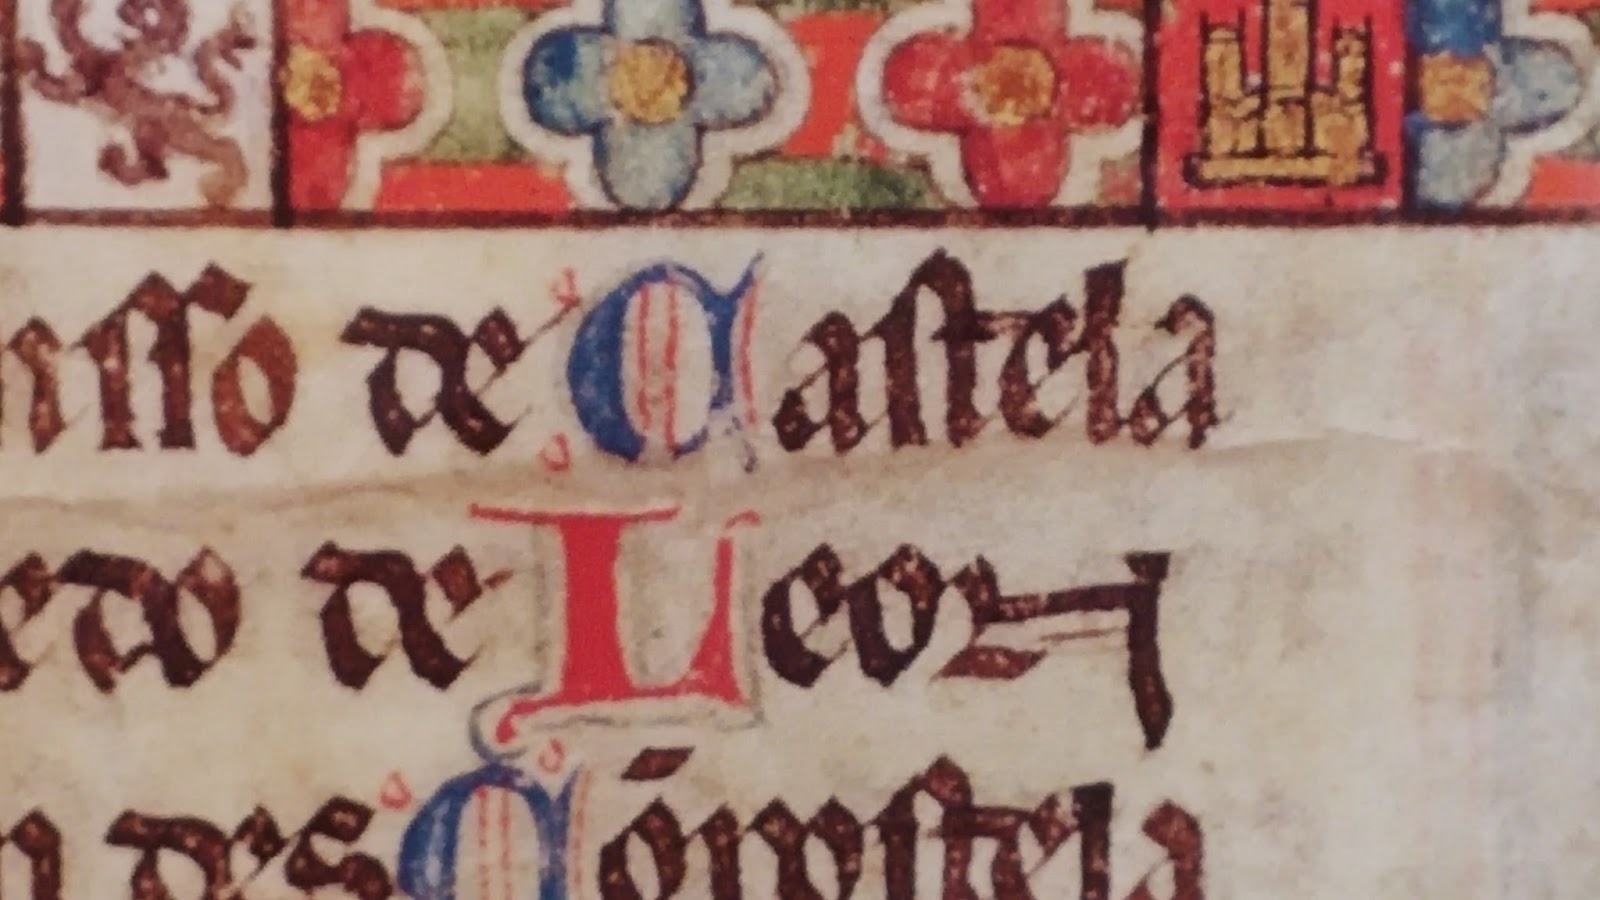 nſſo de Caſtela
edo de Leon
n des Cōpoſtela